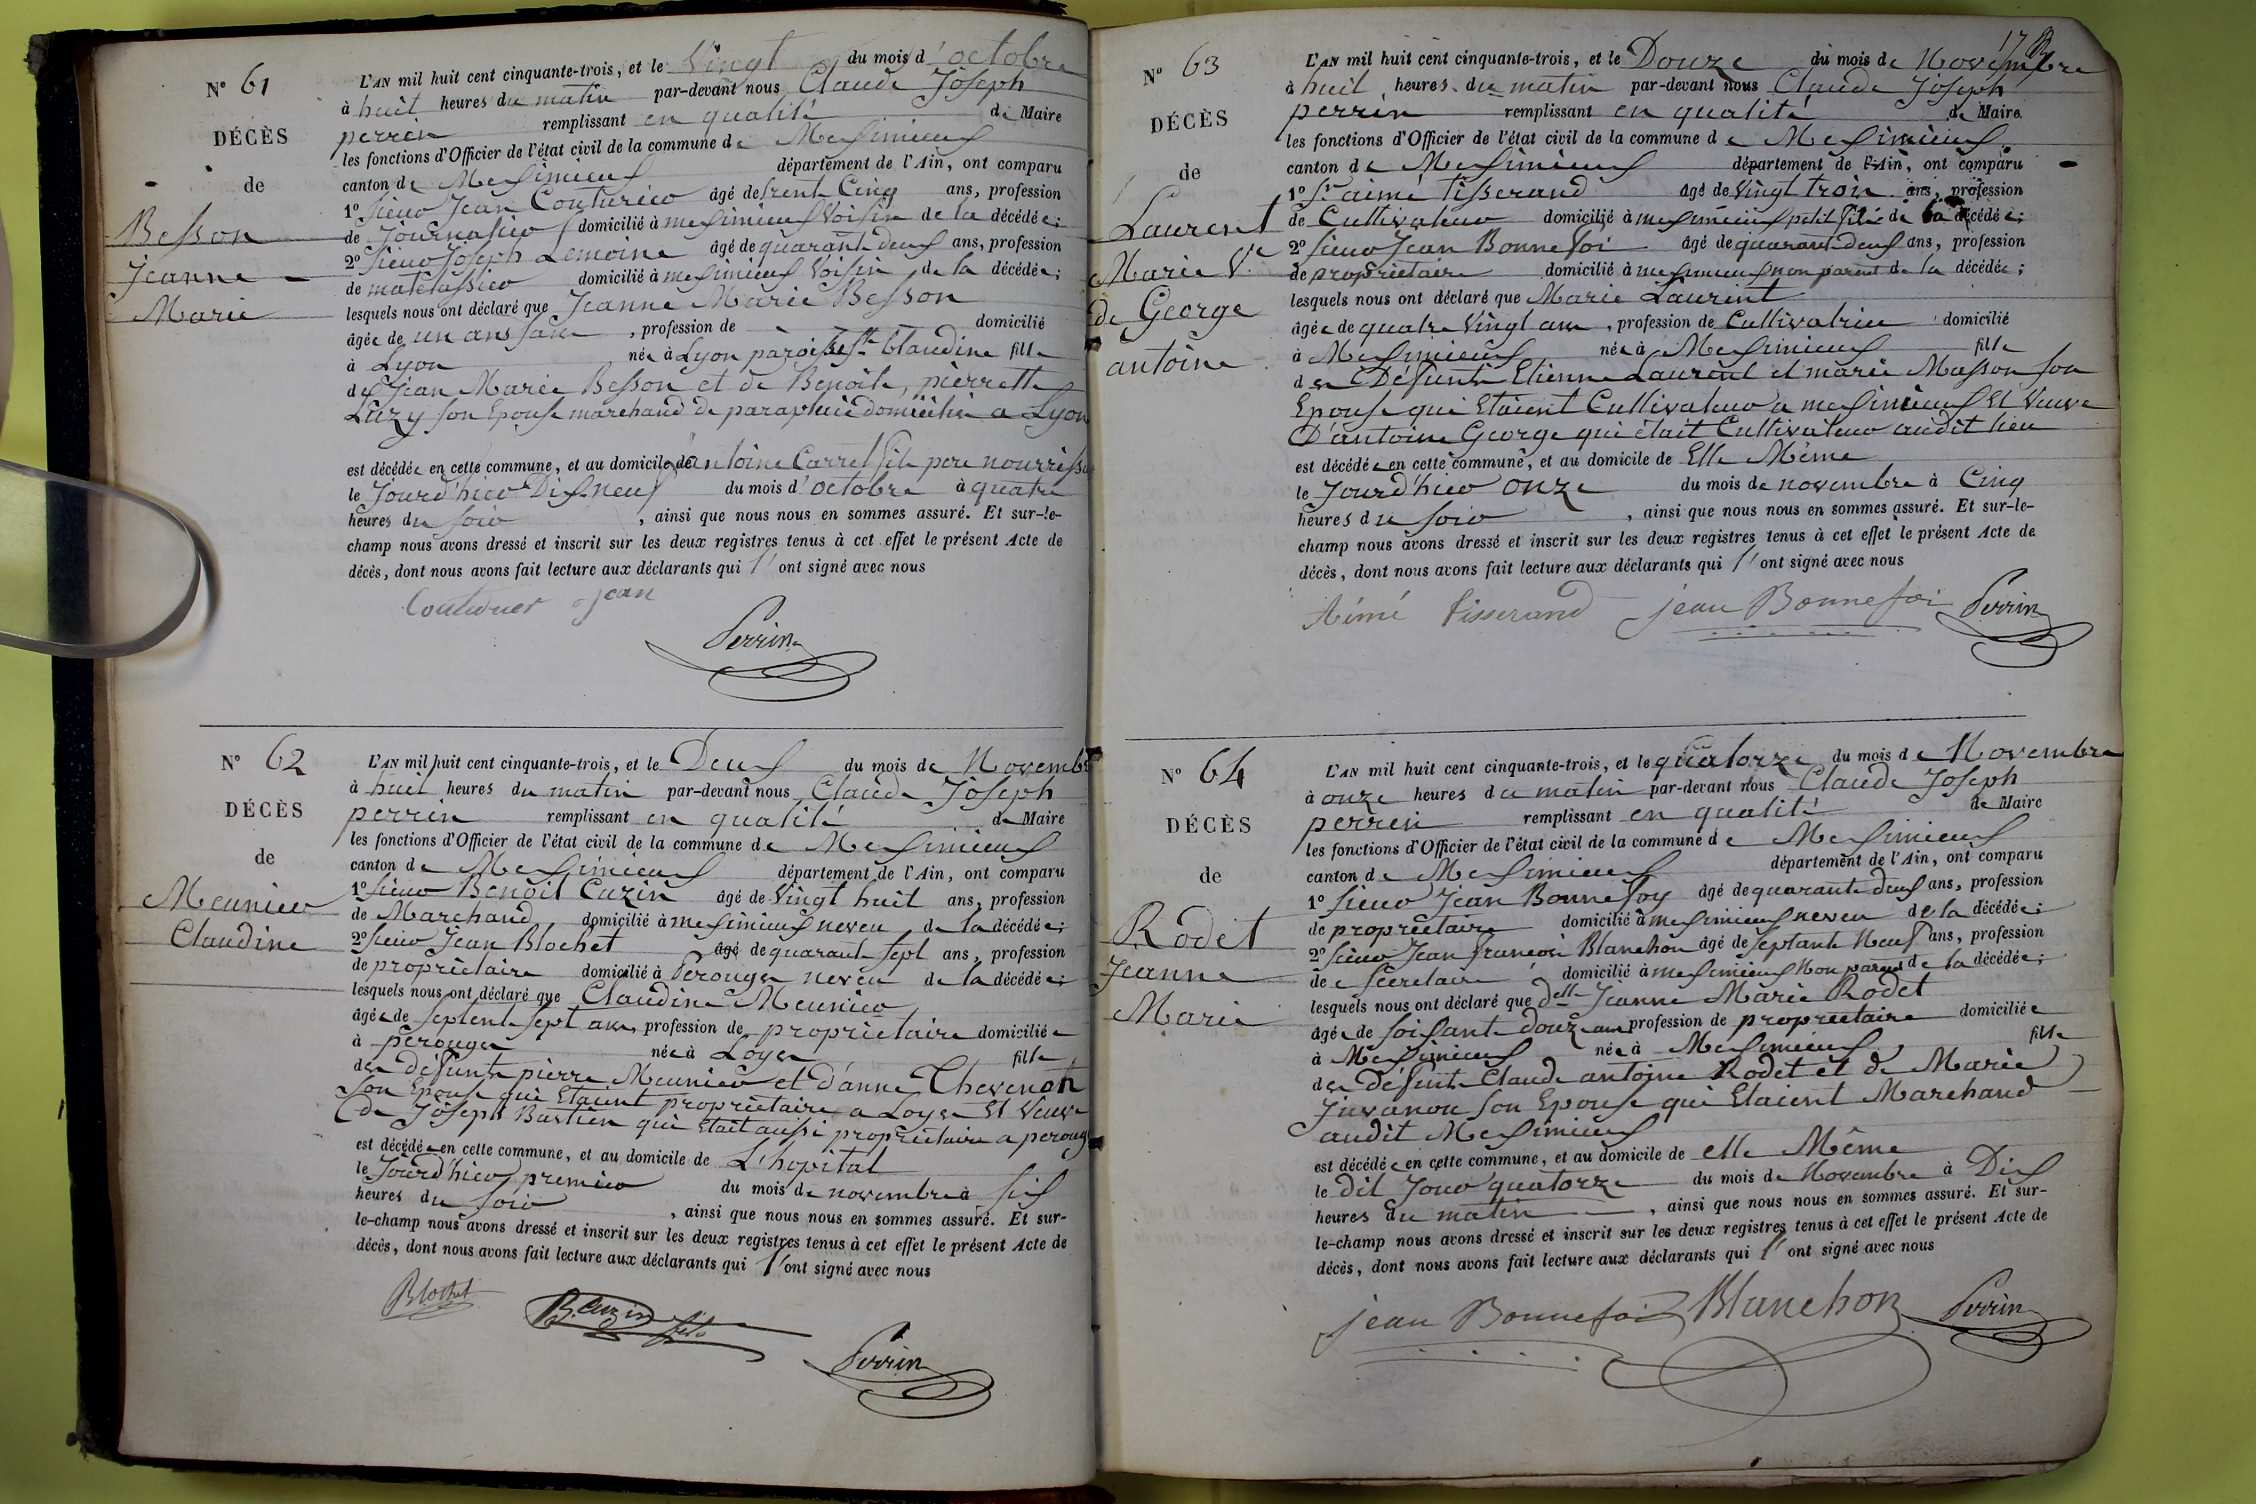 N° 61
DÉCÈS
de
Besson
Jeanne
Marie
L'AN mil huit cent cinquante-trois, et le Vingt du mois d'octobre
à huit heures du matin par-devant nous Claude Joseph
perrin remplissant en qualité de Maire
les fonctions d'Officier de l'état civil de la commune de Meximieux
canton de Meximieux département de l'Ain, ont comparu
1° Sieur Jean Couturier âgé de trente Cinq ans, profession
de Journalier domicilié à meximieux Voisin de la décédée;
2° Sieur Joseph Lemoine âgé de quarante deux ans, profession
de matelassier domicilié à meximieux Voisin de la décédée;
lesquels nous ont déclaré que Jeanne Marie Besson
âgée de un ans , profession de domicilié
à Lyon née à Lyon paroisse Ste Claudine fille
de Jean Marie Besson et de Benoite, pierrette
Luzy son Epouse marchand de parapluie domicilié a Lyon
est décédée en cette commune, et au domicile de antoine Carrel fils pere nourrissier
le Jourd'hier Dix-neuf du mois d'octobre à quatre
heures du soir , ainsi que nous nous en sommes assuré. Et sur-le-
champ nous avons dressé et inscrit sur les deux registres tenus à cet effet le présent Acte de
décès, dont nous avons fait lecture aux déclarants qui l'ont signé avec nous
Couturier jean
Perrin
N° 62
DÉCÈS
de
Meunier
Claudine
L'AN mil huit cent cinquante-trois, et le Deux du mois de Novembre
à huit heures du matin par-devant nous Claude Joseph
perrin remplissant en qualité de Maire
les fonctions d'Officier de l'état civil de la commune de Meximieux
canton de Meximieux département de l'Ain, ont comparu
1° Sieur Benoit Cuzin âgé de Vingt huit ans, profession
de Marchand domicilié à meximieux neveu de la décédée;
2° Sieur Jean Blochet âgé de quarante sept ans, profession
de propriétaire domicilié à Perouges neveu de la décédée;
lesquels nous ont déclaré que Claudine Meunier
âgée de septente sept ans, profession de propriétaire domiciliée
à perouges née à Loyes fille
de défunts pierre Meunier et d'anne Thevenot
son Epouse qui Etaient propriétaire a Loyes Et Veuve
de Joseph Bastien qui Etait aussi propriétaire a perouges
est décédée en cette commune, et au domicile de L'hopital
le Jourd'hier premier du mois de novembre à six
heures du soir , ainsi que nous nous en sommes assuré. Et sur-
le-champ nous avons dressé et inscrit sur les deux registres tenus à cet effet le présent Acte de
décès, dont nous avons fait lecture aux déclarants qui l'ont signé avec nous
Blochet
B. Cuzin fils
Perrin
17
N° 63
DÉCÈS
de
Laurent
Marie Ve
de George
antoine
L'AN mil huit cent cinquante-trois, et le Douze du mois de Novembre
à huit heures du matin par-devant nous Claude Joseph
perrin remplissant en qualité de Maire
les fonctions d'Officier de l'état civil de la commune de Meximieux
canton de Meximieux département de l'Ain, ont comparu
1° Sr aimé tisserand âgé de Vingt trois ans, profession
de Cultivateur domicilié à meximieux petit fils de la décédée;
2° Sieur Jean Bonnefoi âgé de quarante deux ans, profession
de propriétaire domicilié à meximieux non parent de la décédée;
lesquels nous ont déclaré que Marie Laurent
âgée de quatre Vingt ans, profession de Cultivatrice domicilié
à Meximieux née à Meximieux fille
de Défunts Etienne Laurent et marie Masson son
Epouse qui Etaient Cultivateur a meximieux Et Veuve
D'antoine George qui était Cultivateur audit lieu
est décédée en cette commune, et au domicile de Elle Même
le Jourd'hier onze du mois de novembre à Cinq
heures du soir , ainsi que nous nous en sommes assuré. Et sur-le-
champ nous avons dressé et inscrit sur les deux registres tenus à cet effet le présent Acte de
décès, dont nous avons fait lecture aux déclarants qui l'ont signé avec nous
Aimé tisserand jean Bonnefoi Perrin
N° 64
DÉCÈS
de
Rodet
Jeanne
Marie
L'AN mil huit cent cinquante-trois, et le quatorze du mois de Novembre
à onze heures du matin par-devant nous Claude Joseph
perrin remplissant en qualité de Maire
les fonctions d'Officier de l'état civil de la commune de Meximieux
canton de Meximieux département de l'Ain, ont comparu
1° Sieur Jean Bonnefoy âgé de quarante deux ans, profession
de propriétaire domicilié à meximieux neveu de la décédée;
2° Sieur Jean francois Blanchon âgé de septante Neuf ans, profession
de Secretaire domicilié à meximieux Non parent de la décédée;
lesquels nous ont déclaré que delle Jeanne Marie Rodet
âgée de soixante douze ans profession de propriétaire domiciliée
à Meximieux née à Meximieux fille
de défunts Claude antoine Rodet et de Marie
Juvanon son Epouse qui Etaient Marchand
audit Meximieux
est décédée en cette commune, et au domicile de elle Même
le dit Jour quatorze du mois de Novembre à Dix
heures du matin , ainsi que nous nous en sommes assuré. Et sur-
le-champ nous avons dressé et inscrit sur les deux registres tenus à cet effet le présent Acte de
décès, dont nous avons fait lecture aux déclarants qui l'ont signé avec nous
jean Bonnefoi Blanchon Perrin